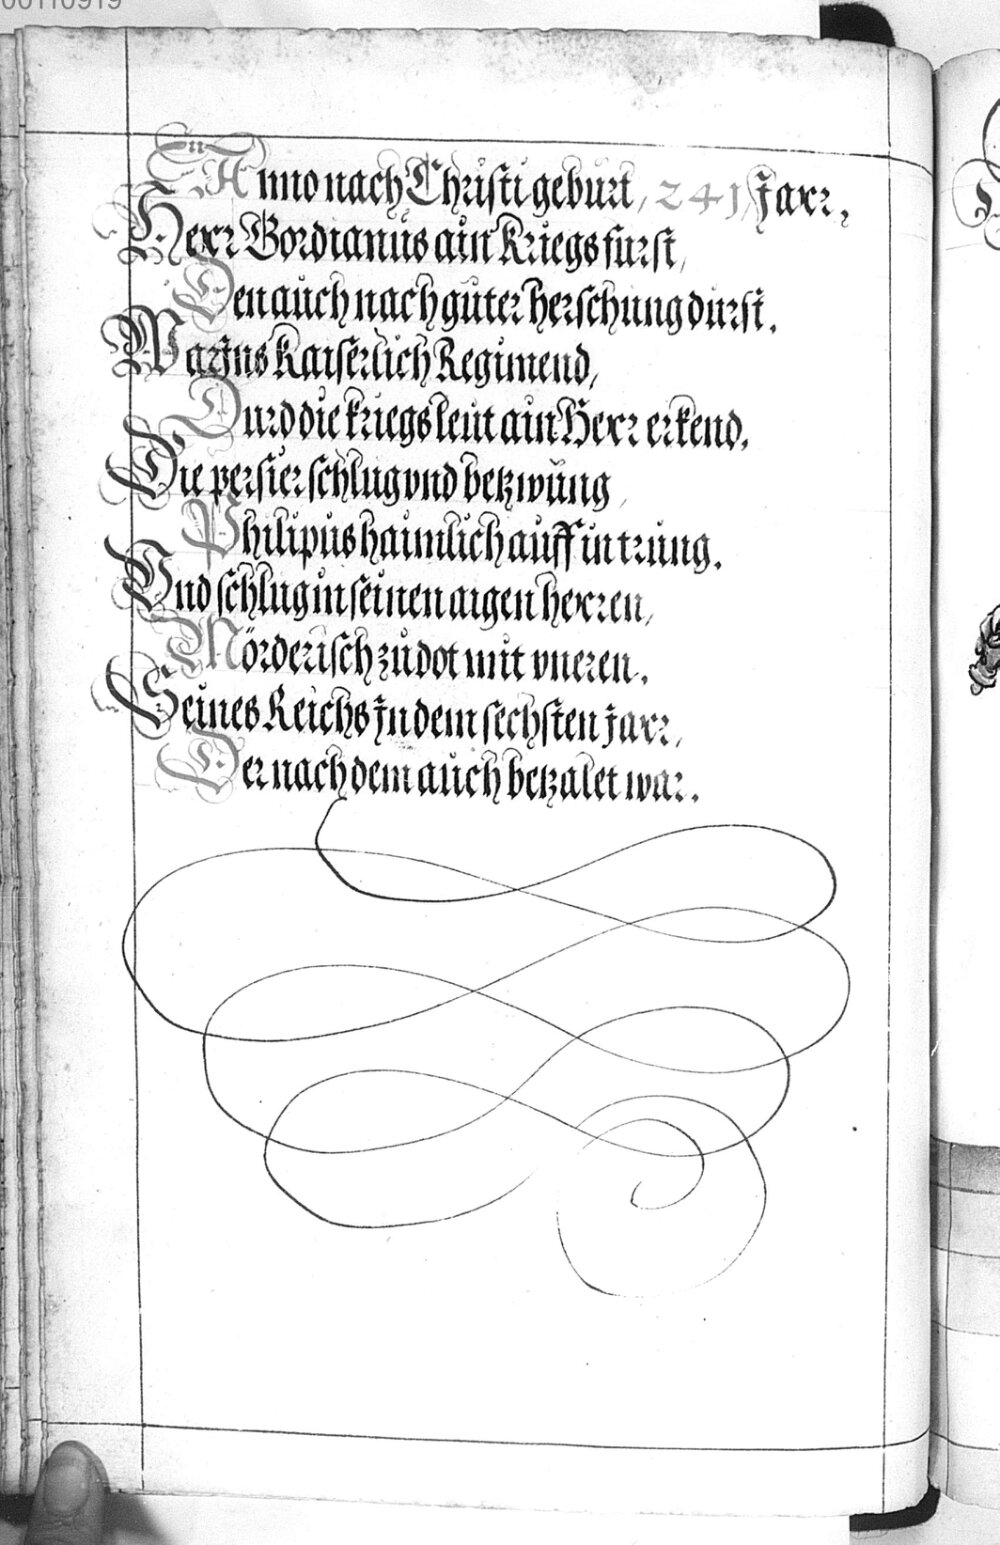 00110919
Anno nach Christi geburt, 241 Jarr,
Herr Gordianus ain Kriegs furst,
Den auch nach guter herschung durst.
Warz Ins Kaiserlich Regimend,
Durch die kriegsleut ain Herr erkend.
Die persier schlug vnd betzwung,
Philipus haimlich auff in trung.
Vnd schlug in seinen aigen herren,
Mörderisch zu dot mit vneren.
Seines Reichs In dem sechsten jarr,
Der nach dem auch betzalet war.